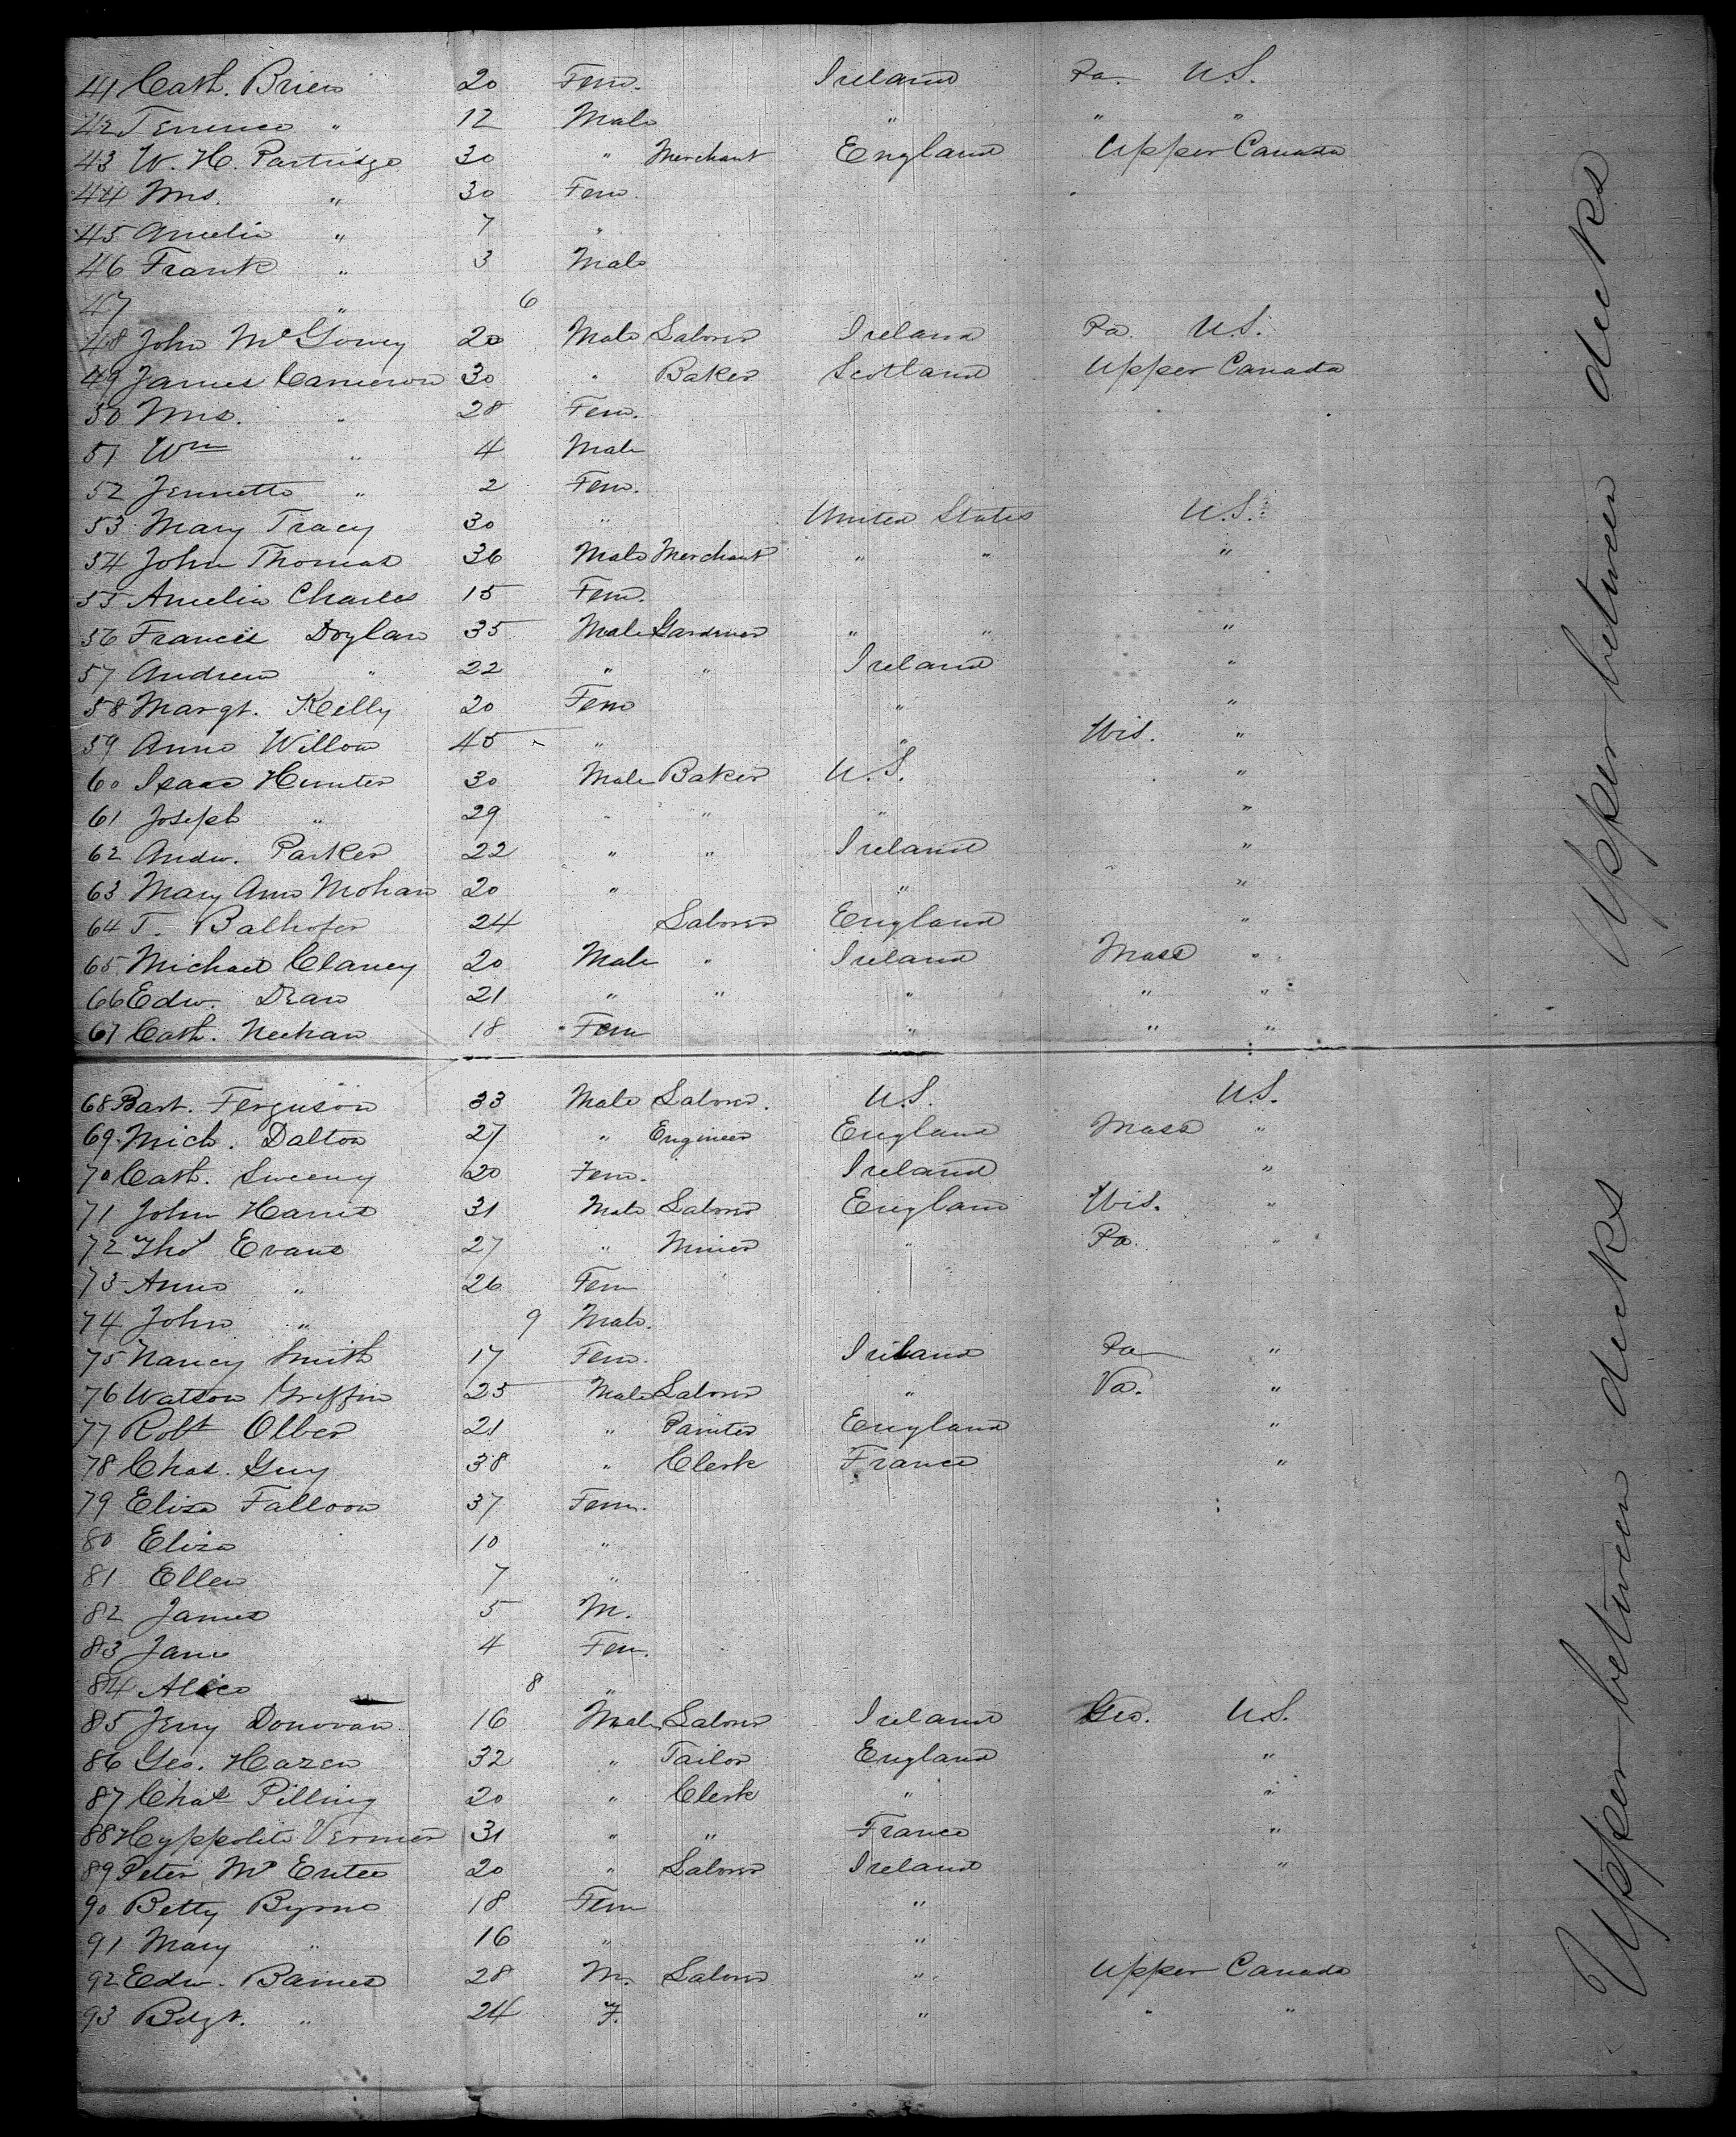 41 Cath. Brien 20 Fem. Ireland Pa. U.S.
42 Terrence " 12 Male " " "
43 W. H. Partridge 30 " Merchant England Upper Canada
44 Mrs. " 30 Fem.
45 Amelia " 7 "
46 Frank " 3 Male
47 " 6
48 John McGowey 20 Male Laborer Ireland Pa. U.S.
49 James Cameron 30 " Baker Scotland Upper Canada
50 Mrs. " 28 Fem.
51 Wm " 4 Male
52 Jennette " 2 Fem.
53 Mary Tracy 30 " United States U.S.
54 John Thomas 36 Male Merchant " " "
55 Amelia Charles 15 Fem.
56 Francis Doylan 35 Male Gardiner " " "
57 Andrew " 22 " " Ireland "
58 Margt. Kelly 20 Fem " "
59 Anne Willow 45 " " Wis. "
60 Isaac Hunter 30 Male Baker U.S. "
61 Joseph " 29 " " " "
62 Andw. Parker 22 " " Ireland "
63 Mary Ann Mohan 20 " " "
64 T. Balhofer 24 Laborer England "
65 Michael Clancy 20 Male " Ireland Mass "
66 Edw. Dean 21 " " " " "
67 Cath. Neehan 18 Fem " " "
68 Bart. Ferguson 33 Male Laborer. U.S. U.S.
69 Mich. Dalton 27 " Engineer England Mass "
70 Cath. Sweeny 20 Fem. Ireland "
71 John Harris 31 Male Laborer England Wis. "
72 Thos Evans 27 " Miner " Pa. "
73 Anne " 26 Fem
74 John " 9 Male.
75 Nancy Smith 17 Fem. Ireland Pa "
76 Watson Griffin 25 Male Laborer " Va. "
77 Robt Olber 21 " Painter England "
78 Chas. Guy 38 " Clerk France "
79 Eliza Falloon 37 Fem.
80 Eliza 10 "
81 Ellen 7 "
82 James 5 M.
83 Jane 4 Fem.
84 Alice 8 "
85 Jerry Donovan. 16 Male Laborer Ireland Geo. U.S.
86 Geo. Hazen 32 " Tailor England "
87 Chas Pilling 20 " Clerk " "
88 Hyppolite Vermer 31 " " France "
89 Peter McEntee 20 " Laborer Ireland "
90 Betty Byrne 18 Fem "
91 Mary " 16 " "
92 Edw. Barnes 28 M. Laborer " Upper Canada
93 Bdgt. " 24 F. " " "
Upper between decks
Upper between decks